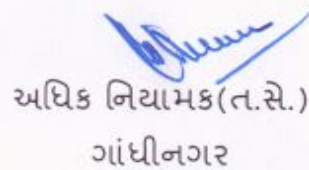 અધિક નિયામક(ત.સે.)
ગાંધીનગર